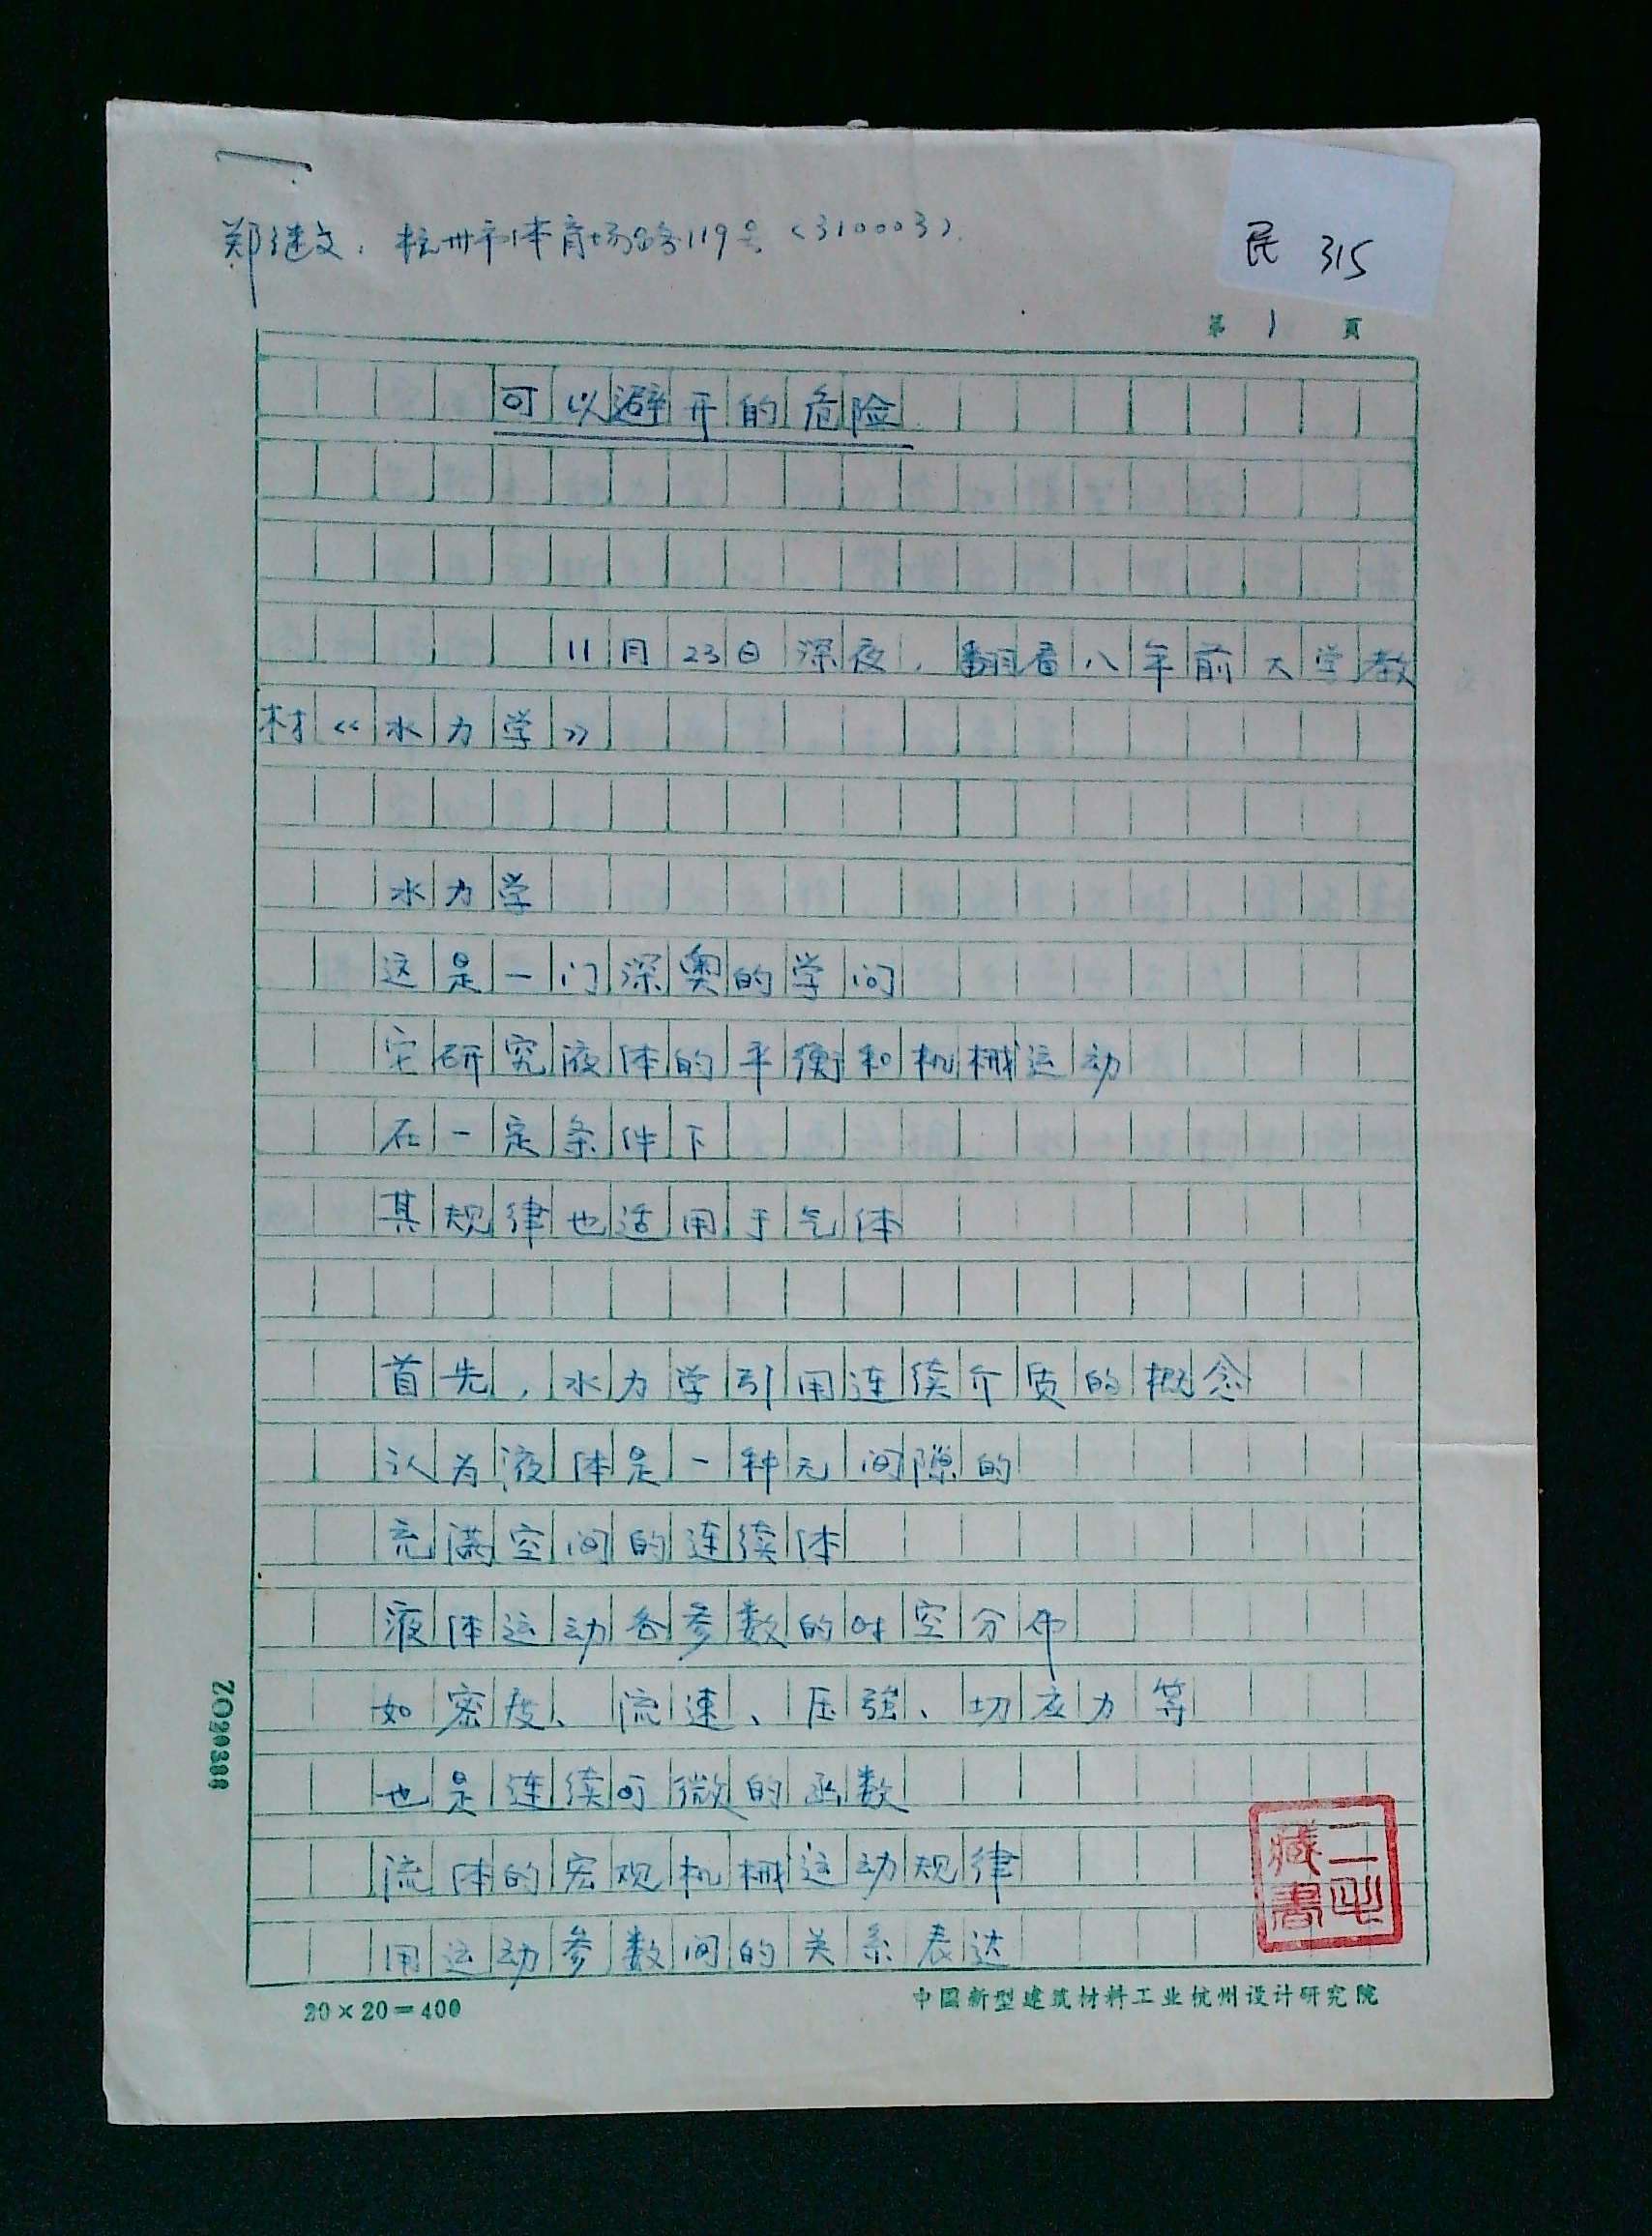 郑继文：杭州市体育场路119号（310003）
民 315
第 1 页
可以避开的危险
11月23日深夜，翻看八年前大学教
材《水力学》
水力学
这是一门深奥的学问
它研究液体的平衡和机械运动
在一定条件下
其规律也适用于气体
首先，水力学引用连续介质的概念
认为液体是一种无间隙的
充满空间的连续体
液体运动各参数的时空分布
如密度、流速、压强、切应力等
也是连续可微的函数
流体的宏观机械运动规律
用运动参数间的关系表达
20×20=400
中国新型建筑材料工业杭州设计研究院